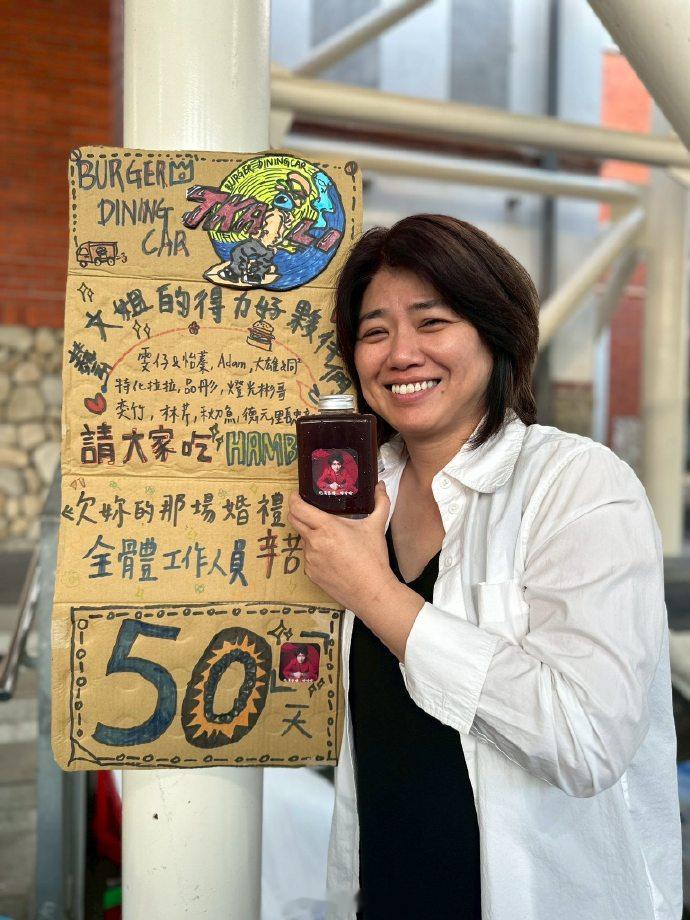 BURGER
DINING
CAR
BURGER DINING CAR
大姐的得力好夥伴
雯仔&怡蓁, Adam, 大雄
特化拉拉, 品彤, 燈光彬哥
奕竹, 林芹, 秋刀魚, 德元
請大家吃 HAMB
《欠妳的那場婚禮
全體工作人員 辛苦
50
天